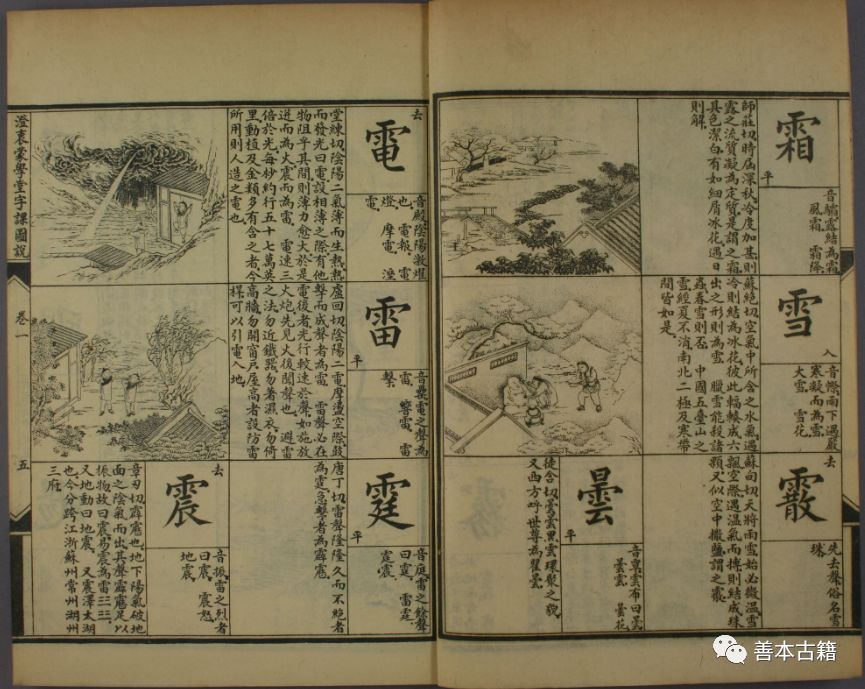 霜
平
音驦露結為霜
風霜 霜降
師莊切時屆深秋冷度加甚則
露之流質凝為定質是謂之霜
具色潔白有如細屑冰花遇日
則解
雪
入
寒凝而為雪
大雪 雪花
蘇絕切空氣中所含之水氣遇
冷則結為冰花彼此輻輳成六
出之形則為雪 臘雪能殺諸
蟲春雪則否 中國五臺山之
雪經夏不消南北二極及寒帶
間皆如是
霰
去
先去聲俗名雪
珠
蘇向切天將雨雪始必微溫雪
飄空際遇溫氣而摶則結成珠
顆又似空中撒鹽謂之霰
曇
平
音覃雲布曰曇
曇雲 曇花
徒含切曇雲黑雲環聚之貌
又西方呼世尊為瞿曇
電
去
音殿陰陽激燿
也 電報 電
燈 摩電 溼
電
堂練切陰陽二氣薄而生熱熱
而發光曰電設相薄之際有他
物阻乎其間則薄力愈大於是
迸而為火震而為雷 電速三
倍於光每秒約行五十七萬英
里動植及金類多有含之者今
所用則人造之電也
雷
平
電之聲為
雷 響雷 雷
擊
盧回切陰陽二電摩盪空際鼓
擊而成聲者為雷 雷聲必在
電後者光行較速於聲如施放
火炮先見火後聞聲也 避雷
之法勿近鐵器勿著濕衣勿倚
高牆勿開窗戶屋高者設防雷
桿可以引電入地
霆
平
音庭雷之餘聲
曰霆 雷霆
霆霆
唐丁切雷聲隆隆久而不絕者
為霆急擊者為霹靂
震
去
音振雷之烈者
曰震 震怒
地震
章刃切霹靂也地下陽氣破地
面之陰氣而出其聲霹靂足以
振物故曰震易震為雷
又地動曰地震 又震澤太湖
也今分跨江浙蘇州常州湖州
三府
澄衷蒙學堂字課圖說
卷一
五
善本古籍